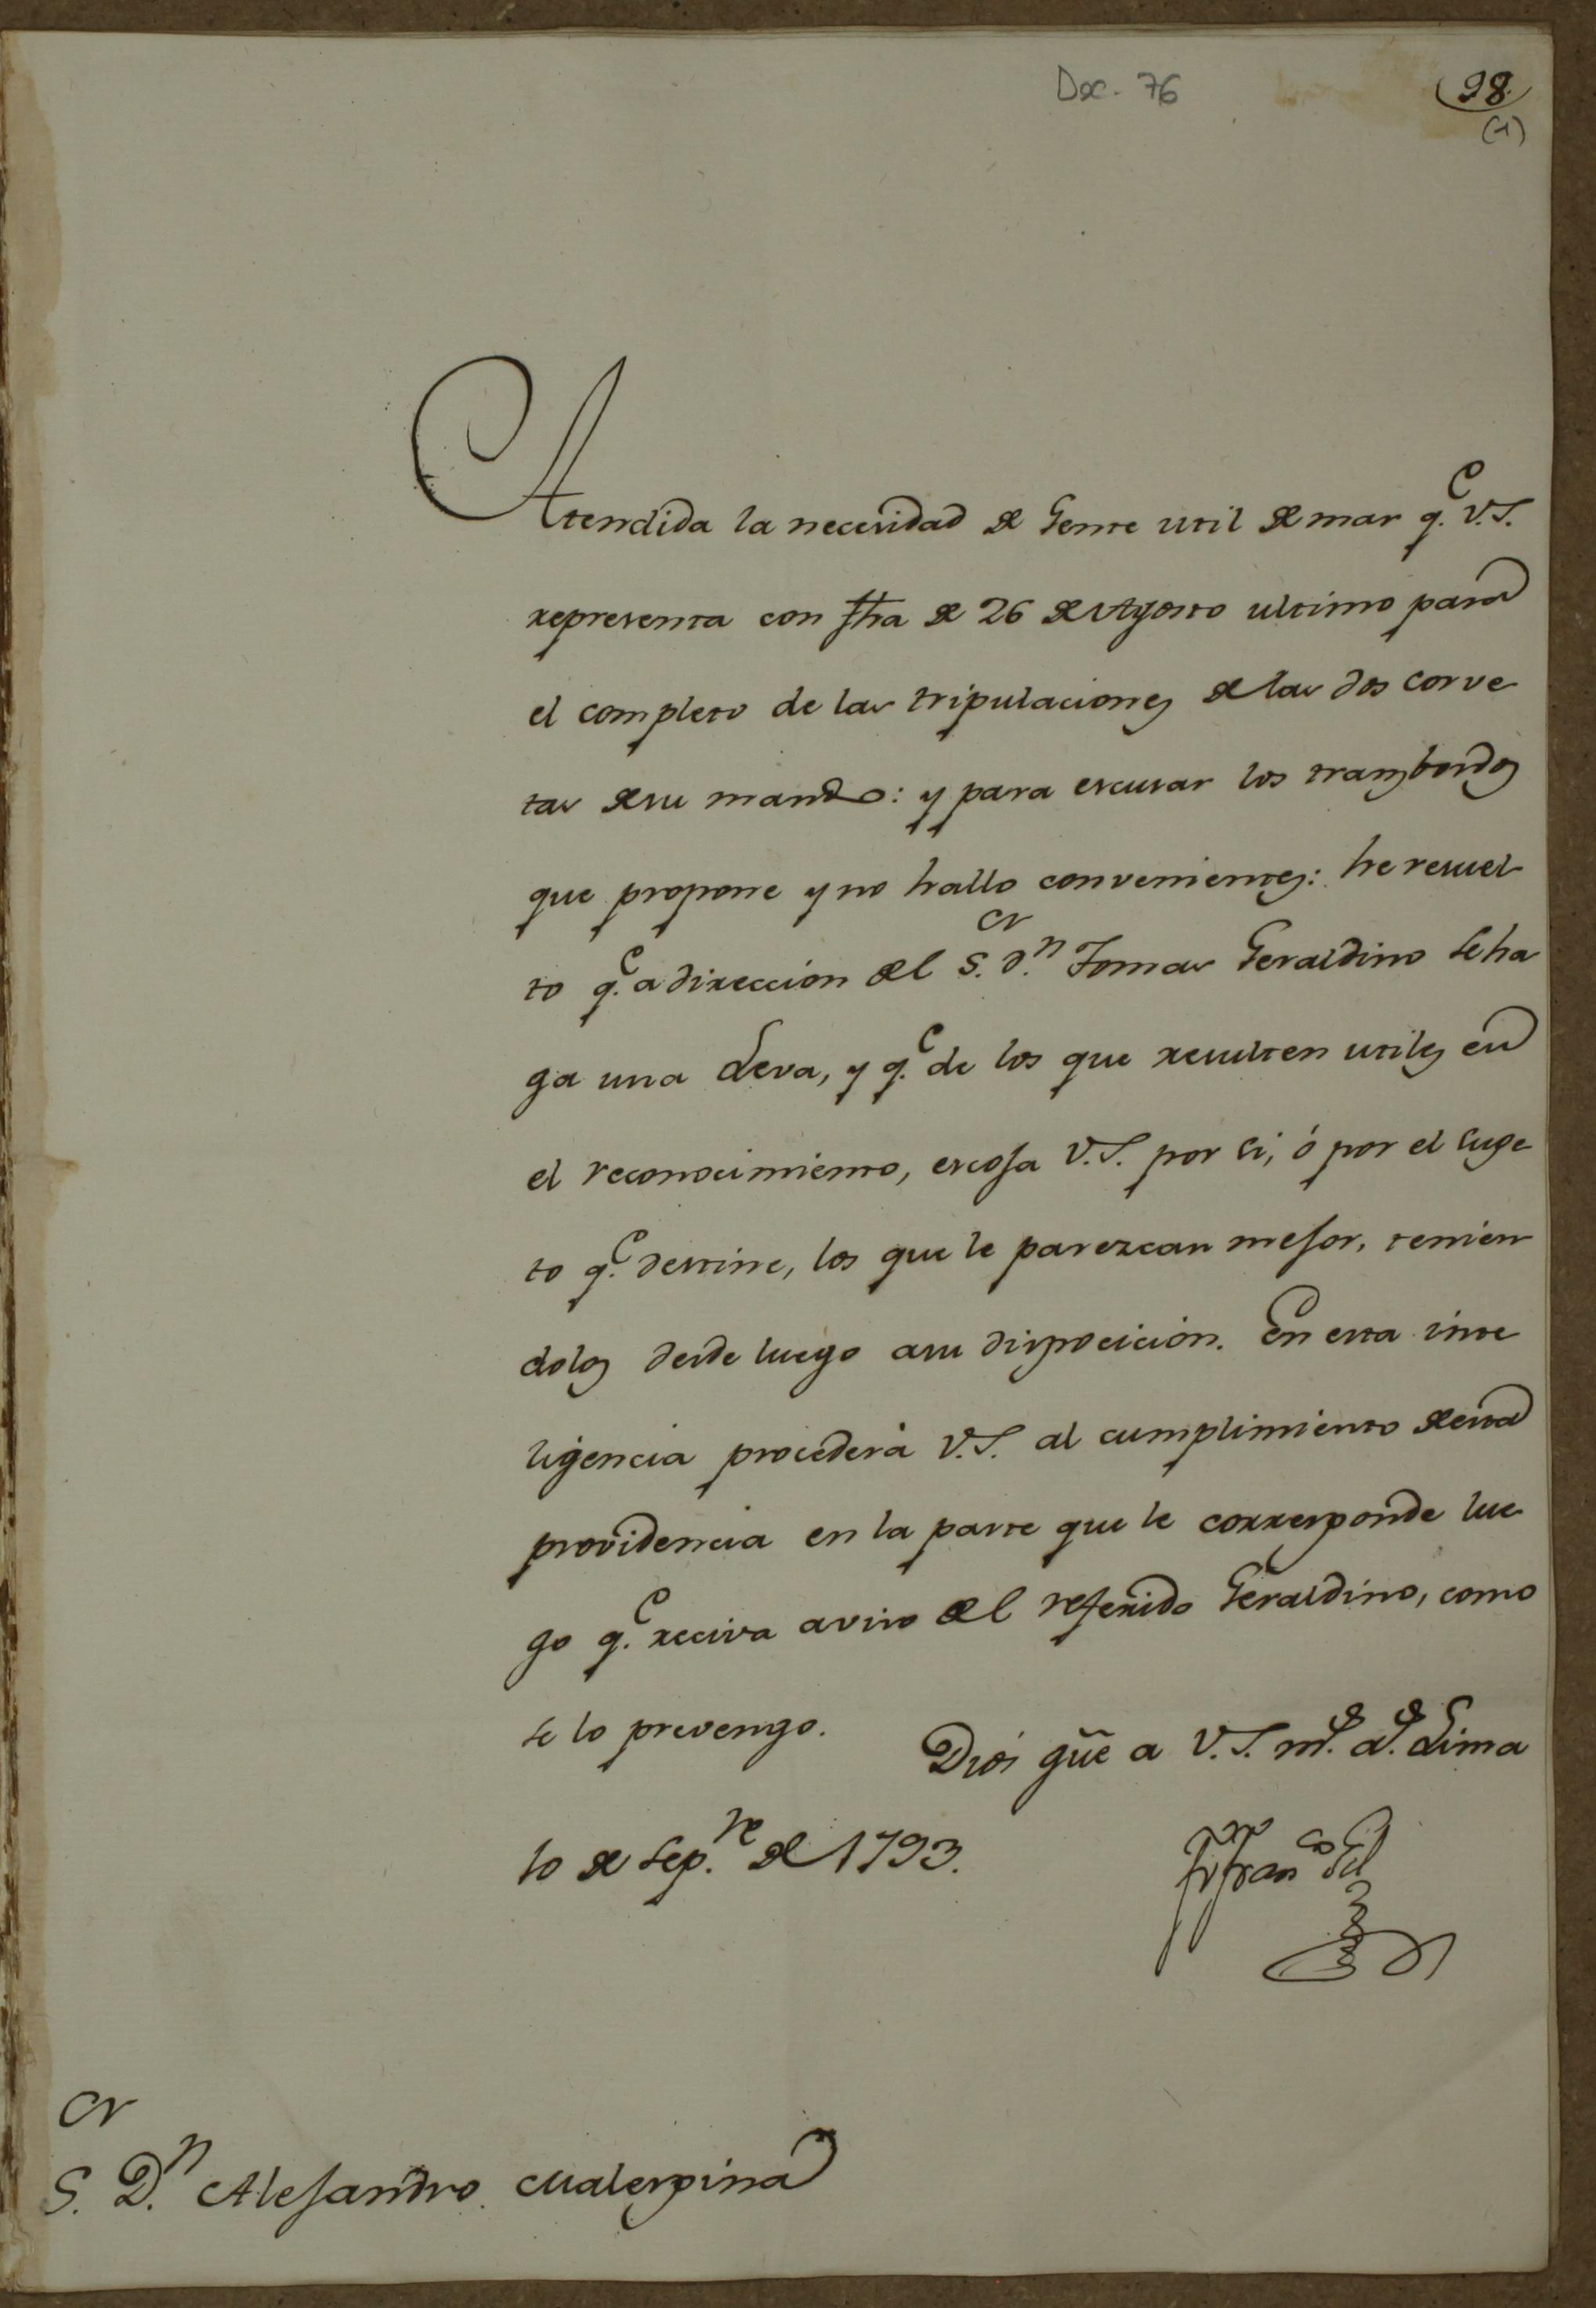 Doc. 76
98
(1)
Atendida la necesidad de Gente util de mar q.e V.S.
representa con fha de 26 de Agosto ultimo para
el completo de las tripulaciones de las dos corve
tas de su mando: y para escusar los transbordos
que propone y no hallo convenientes: he resuel
to q.e a direccion del S.or D.n Tomas Geraldino se ha
ga una Leva, y q.e de los que resulten utiles en
el reconocimiento, escoja V.S. por si, ó por el suge
to q.e destine, los que le parezcan mejor, tenien
dolos desde luego a su disposicion. En esta inte
ligencia procederá V.S. al cumplimiento de esta
providencia en la parte que le corresponde lue
go q.e reciva aviso del referido Geraldino, como
se lo prevengo.
Dios gũe a V.S. m.s a.s Lima
10 de Sep.re de 1793.
Fr. Fran.co Gil
S.or D.n Alejandro Malespina